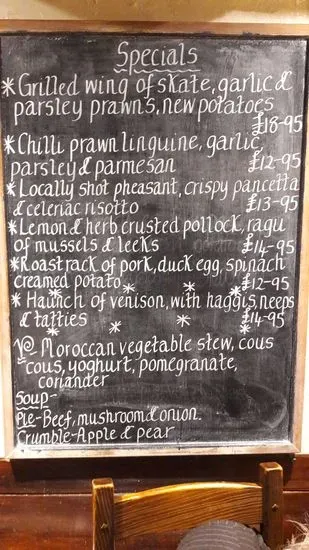 Specials
*Grilled wing of skate, garlic &
parsley prawns, new potatoes
£18-95
*Chilli prawn linguine, garlic,
parsley & parmesan £12-95
*Locally shot pheasant, crispy pancetta
& celeriac risotto £13-95
*Lemon & herb crusted pollock, ragu
of mussels & leeks £14-95
*Roast rack of pork, duck egg, spinach
creamed potato £12-95
*Haunch of venison, with haggis, neeps
& tatties £14-95
V@- Moroccan vegetable stew, cous
cous, yoghurt, pomegranate,
coriander
Soup-
Pie-Beef, mushroom & onion.
Crumble-Apple & pear